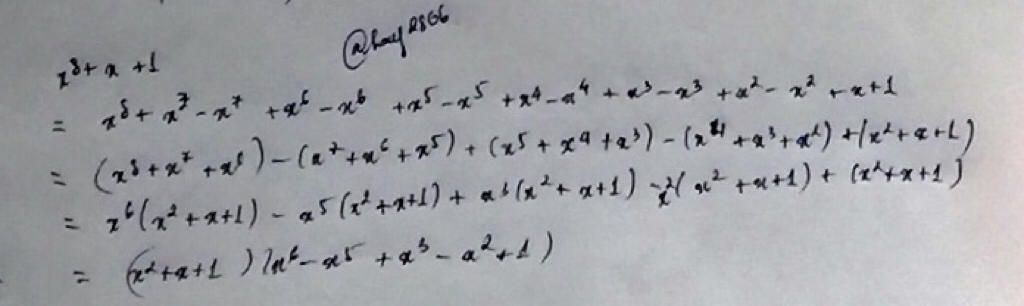 @houf2866
x⁸ + x + 1
= x⁸ + x⁷ - x⁷ + x⁶ - x⁶ + x⁵ - x⁵ + x⁴ - x⁴ + x³ - x³ + x² - x² + x + 1
= (x⁸ + x⁷ + x⁶) - (x⁷ + x⁶ + x⁵) + (x⁵ + x⁴ + x³) - (x⁴ + x³ + x²) + (x² + x + 1)
= x⁶(x² + x + 1) - x⁵(x² + x + 1) + x³(x² + x + 1) - x²(x² + x + 1) + (x² + x + 1)
= (x² + x + 1)(x⁶ - x⁵ + x³ - x² + 1)